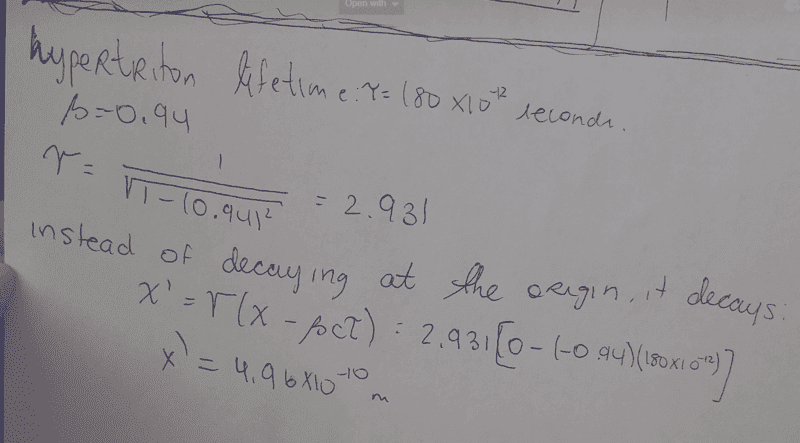 Open with
hypertriton lifetime: τ = 180 x10^-12 seconds.
β=0.94
γ = 1/√(1-(0.94)²) = 2.931
instead of decaying at the origin, it decays:
x' = γ(x - βcτ) = 2.931[0-(-0.94)(180x10^-12)]
x' = 4.96x10^-10 m